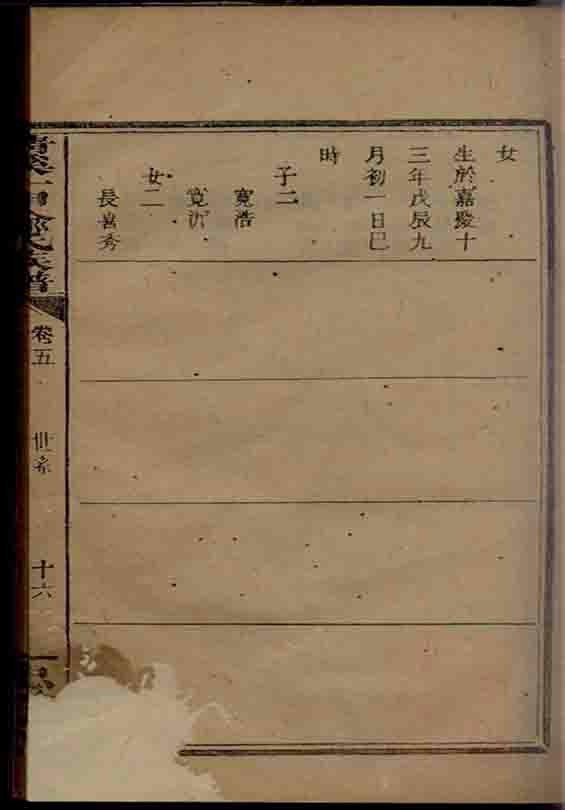 女
生於嘉慶十
三年戊辰九
月初一日巳
時
子二
寬浩
寬沂
女二
長喜秀
氏族譜
卷五
世系
十六